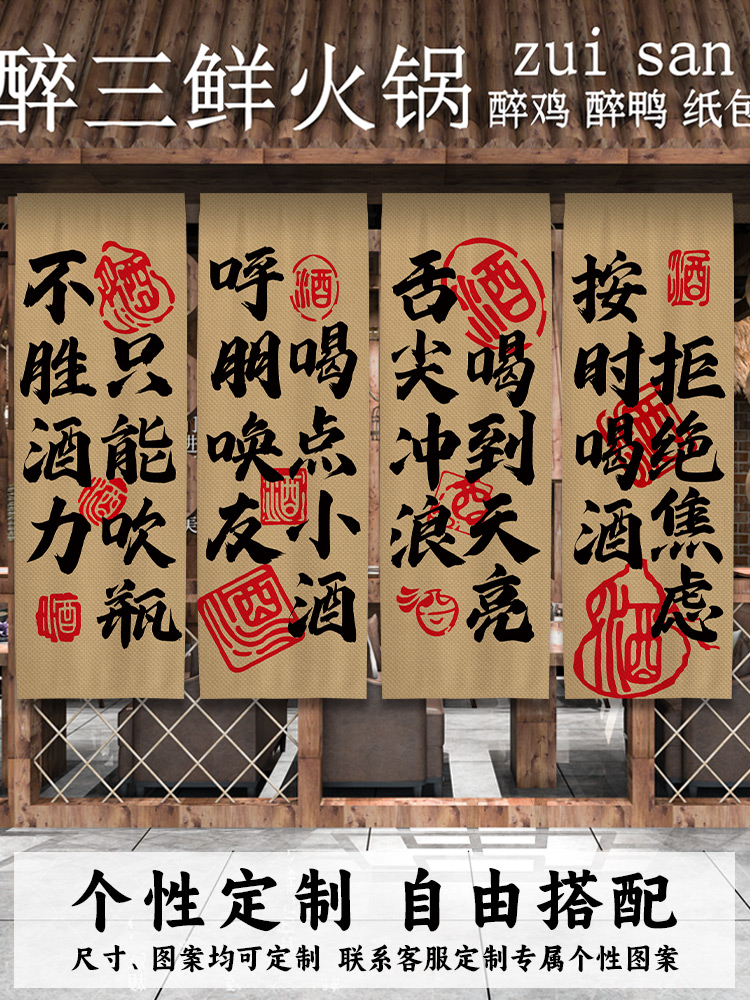 醉三鲜火锅
zui san
醉鸡 醉鸭 纸包
不胜酒力
只能吹瓶
酒
酒
酒
呼朋唤友
喝点小酒
酒
酒
酒
舌尖冲浪
喝到天亮
酒
酒
按时喝酒
拒绝焦虑
酒
酒
酒
个性定制 自由搭配
尺寸、图案均可定制 联系客服定制专属个性图案